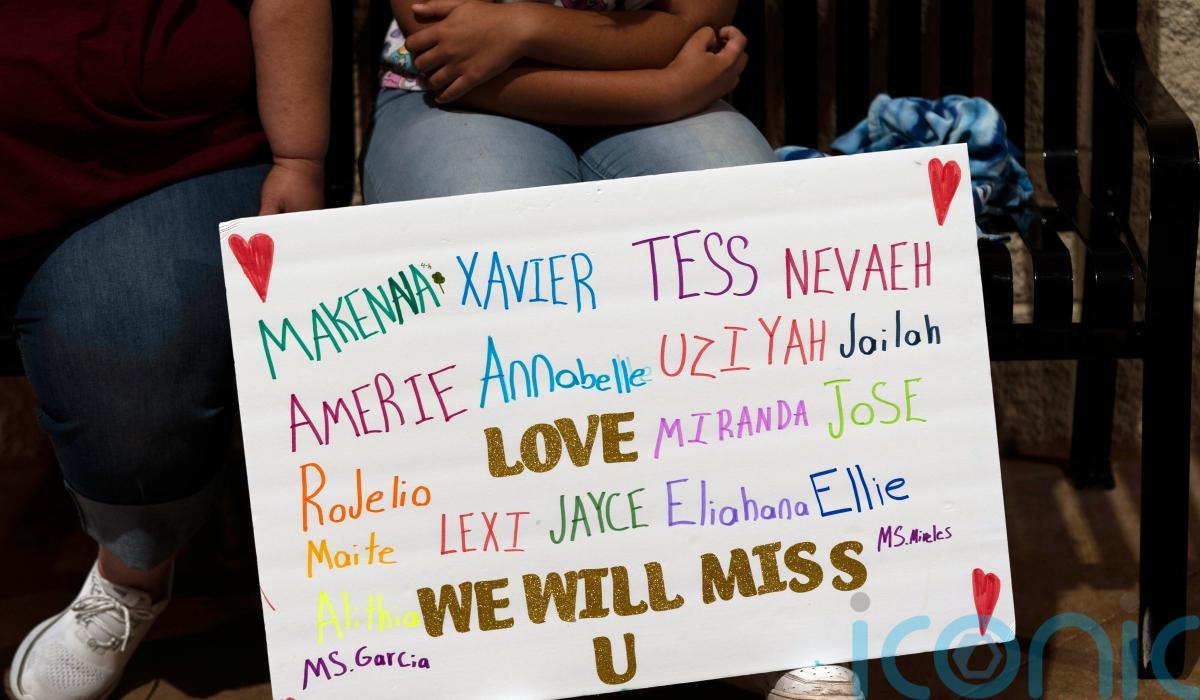 MAKENNA XAVIER TESS NEVAEH
AMERIE Annabelle UZIYAH Jailah
LOVE MIRANDA JoSE
RoJelio LEXI JAYCE Eliahana Ellie
Maite
MS. Mireles
Alithia WE WILL MISS
MS. Garcia U
iconic